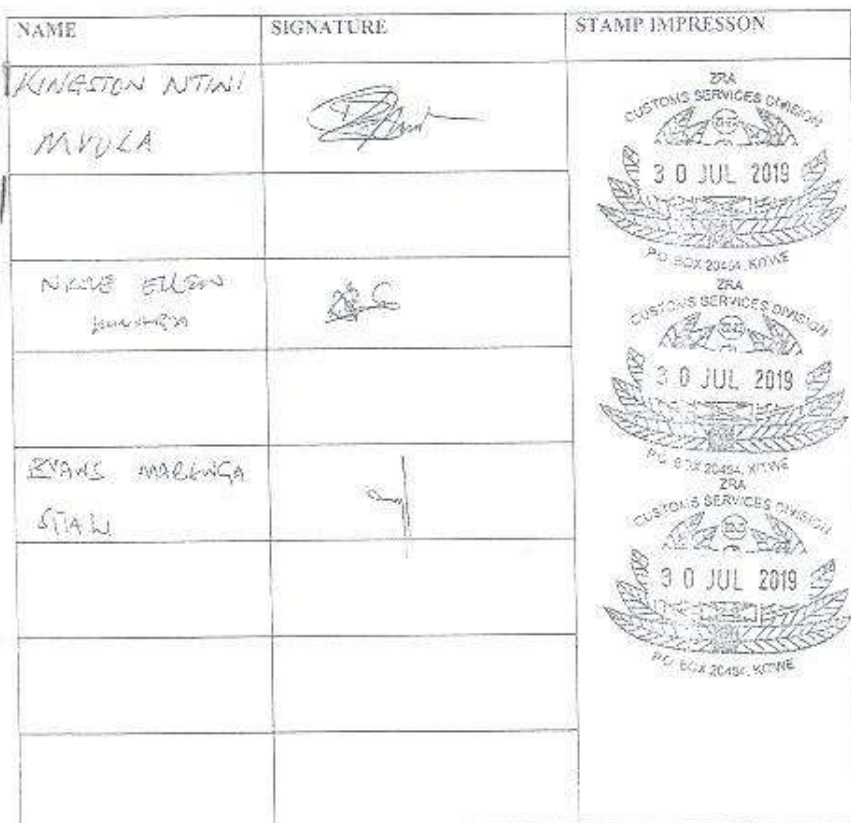 NAME SIGNATURE STAMP IMPRESSON
KINGSTON NTINI
MVULA
ZRA
CUSTOMS SERVICES DIVISION
30 JUL 2019
P.O. BOX 20454, KITWE
ELLEN
ZRA
CUSTOMS SERVICES DIVISION
30 JUL 2019
P.O. BOX 20454, KITWE
EVANS
ZRA
CUSTOMS SERVICES DIVISION
30 JUL 2019
P.O. BOX 20454, KITWE